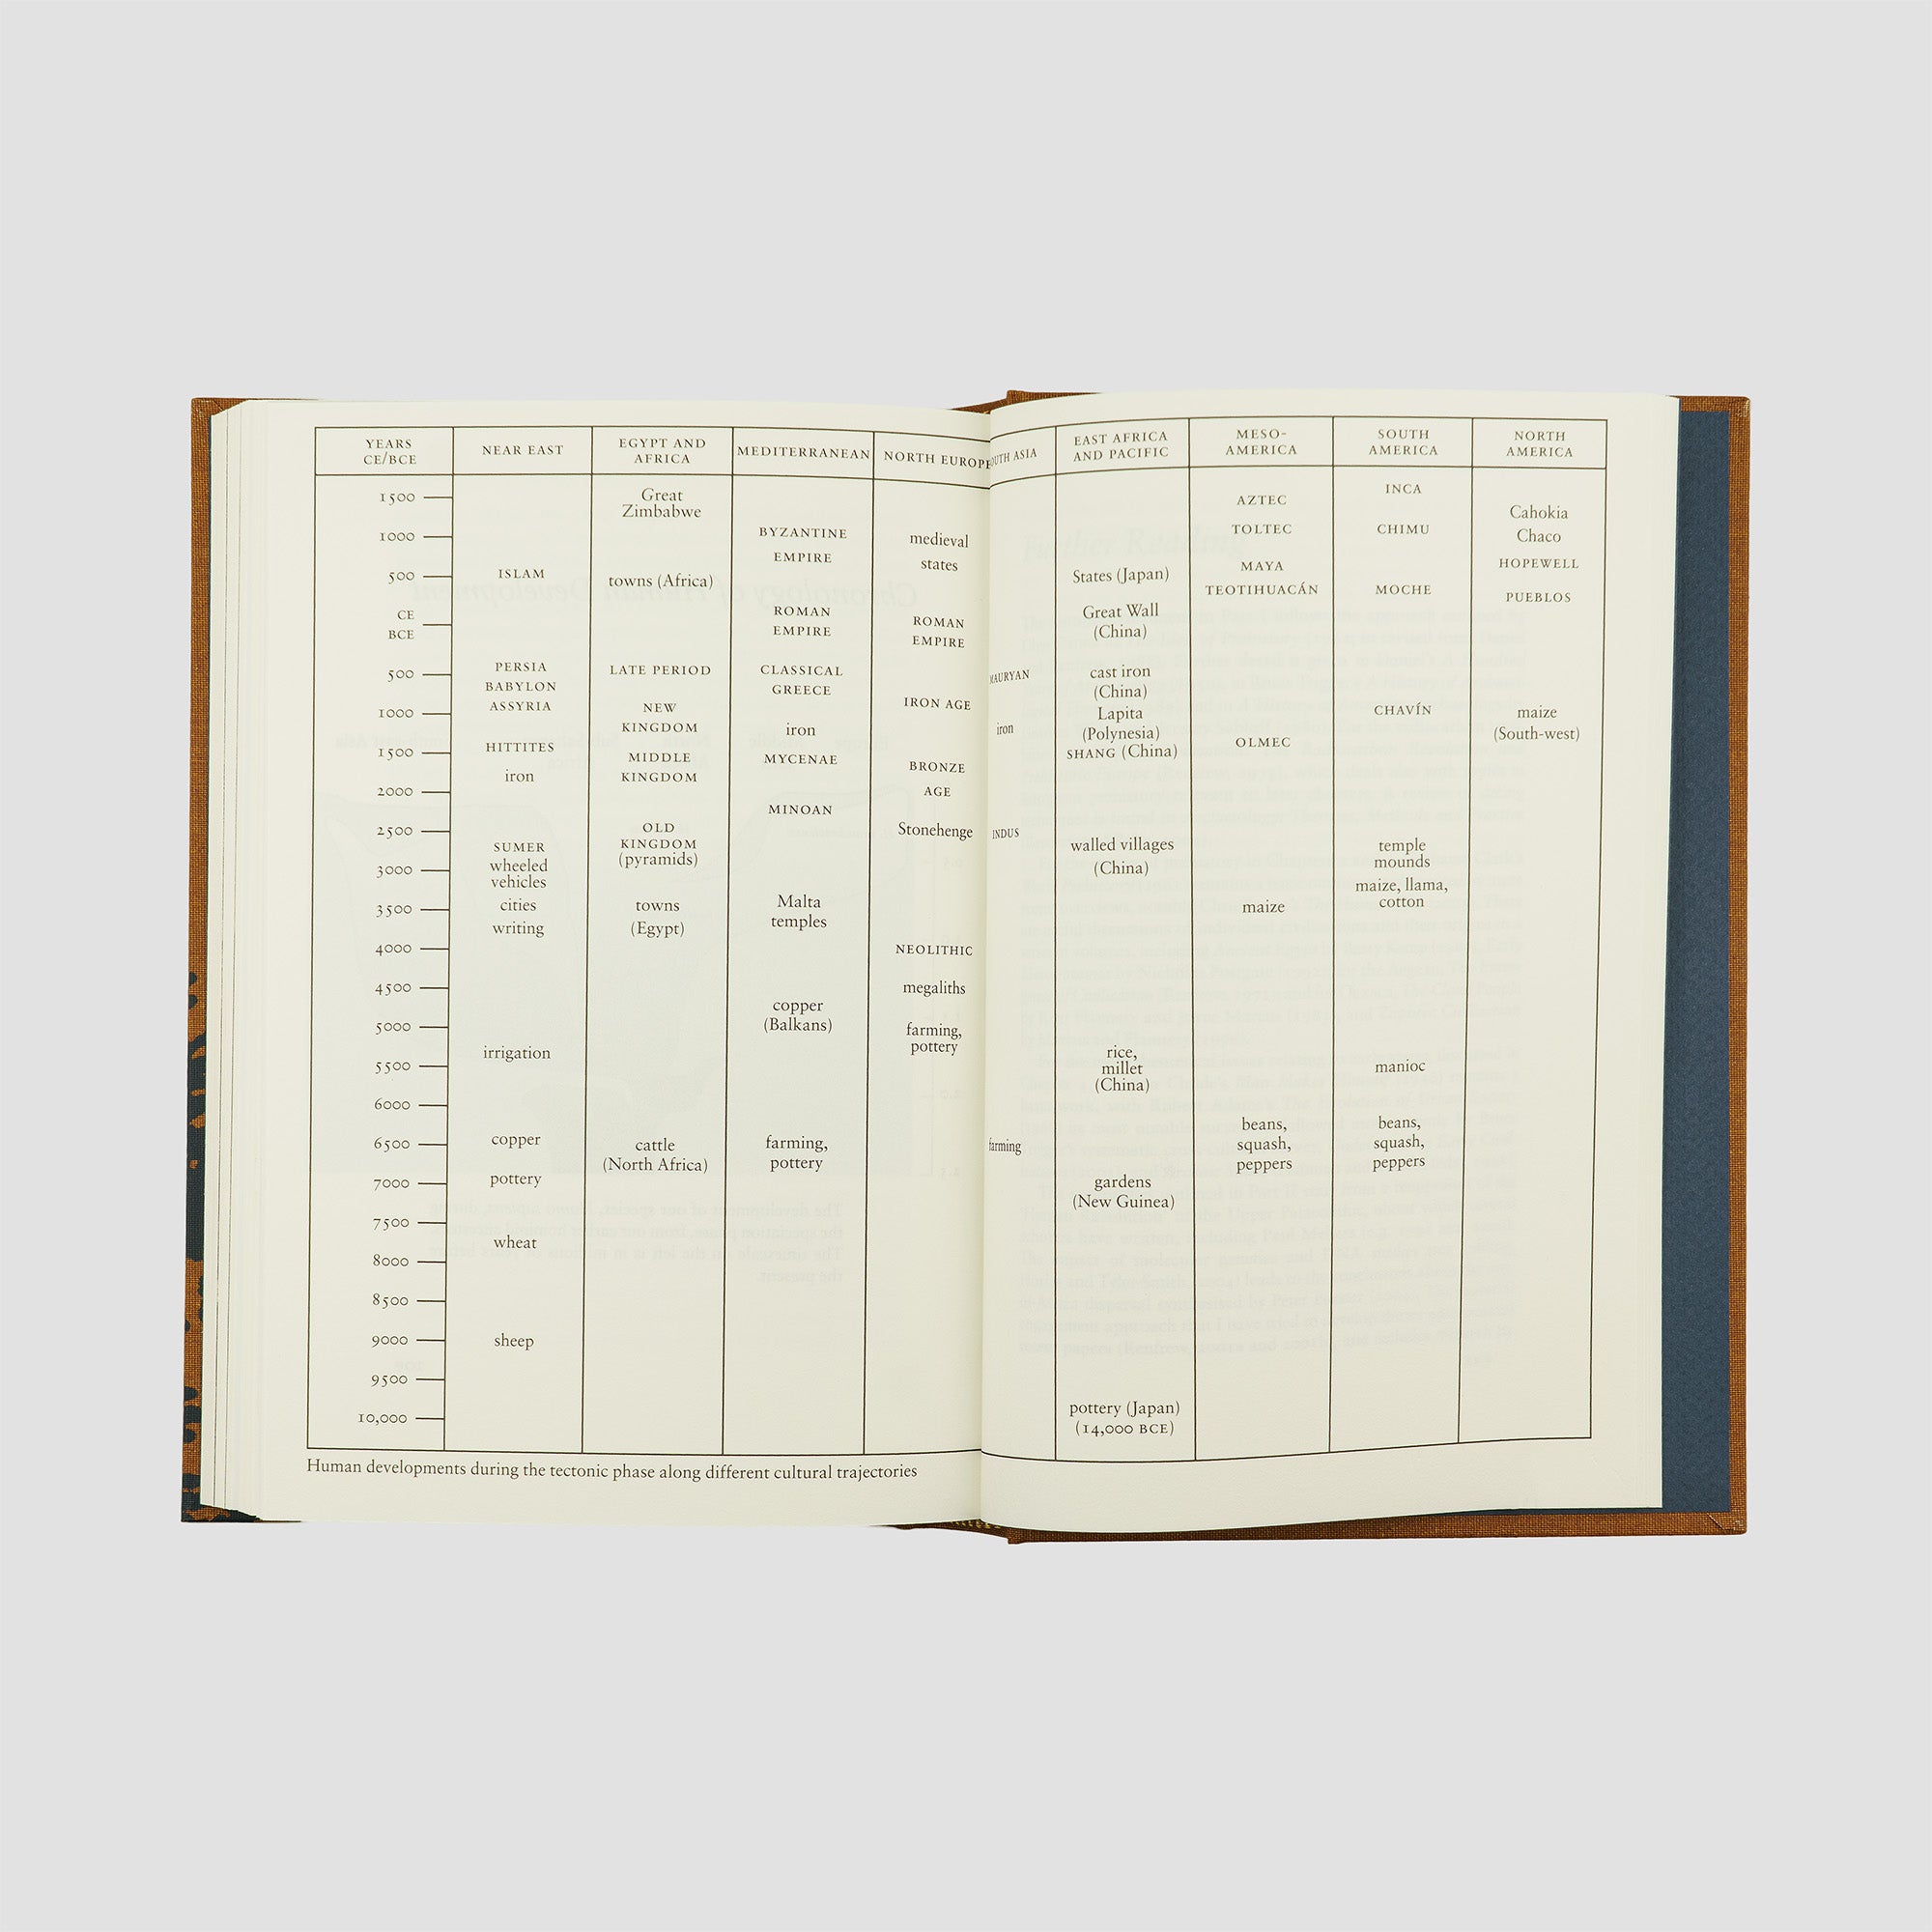 YEARS
CE/BCE
1500
1000
500
CE
BCE
500
1000
1500
2000
2500
3000
3500
4000
4500
5000
5500
6000
6500
7000
7500
8000
8500
9000
9500
10,000
NEAR EAST
ISLAM
PERSIA
BABYLON
ASSYRIA
HITTITES
iron
SUMER
wheeled
vehicles
cities
writing
irrigation
copper
pottery
wheat
sheep
EGYPT AND
AFRICA
Great
Zimbabwe
towns (Africa)
LATE PERIOD
NEW
KINGDOM
MIDDLE
KINGDOM
OLD
KINGDOM
(pyramids)
towns
(Egypt)
cattle
(North Africa)
MEDITERRANEAN
BYZANTINE
EMPIRE
ROMAN
EMPIRE
CLASSICAL
GREECE
iron
MYCENAE
MINOAN
Malta
temples
copper
(Balkans)
farming,
pottery
NORTH EUROPE
medieval
states
ROMAN
EMPIRE
IRON AGE
BRONZE
AGE
Stonehenge
NEOLITHIC
megaliths
farming,
pottery
OUTH ASIA
MAURYAN
iron
INDUS
farming
EAST AFRICA
AND PACIFIC
States (Japan)
Great Wall
(China)
cast iron
(China)
Lapita
(Polynesia)
SHANG (China)
walled villages
(China)
rice,
millet
(China)
gardens
(New Guinea)
pottery (Japan)
(14,000 BCE)
MESO-
AMERICA
AZTEC
TOLTEC
MAYA
TEOTIHUACÁN
OLMEC
maize
beans,
squash,
peppers
SOUTH
AMERICA
INCA
CHIMU
MOCHE
CHAVÍN
temple
mounds
maize, llama,
cotton
manioc
beans,
squash,
peppers
NORTH
AMERICA
Cahokia
Chaco
HOPEWELL
PUEBLOS
maize
(South-west)
Human developments during the tectonic phase along different cultural trajectories